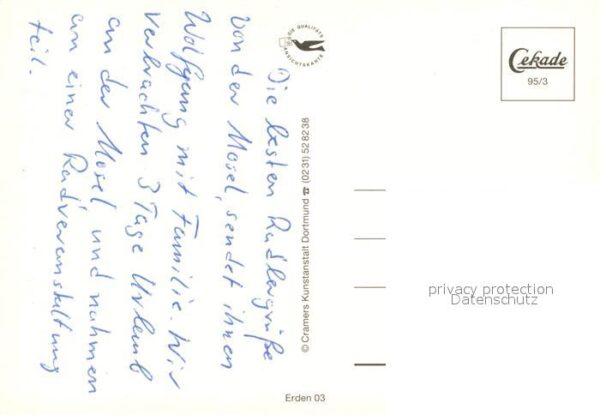 Die besten Radlergrüße
von der Mosel, sendet ihnen
Wolfgang mit Familie. Wir
verbrachten 3 Tage Urlaub
an der Mosel und nahmen
an einer Radveranstaltung
teil.
DIE QUALITÄTS
ANSICHTSKARTE
© Cramers Kunstanstalt Dortmund ☎ (0231) 528238
Erden 03
Cekade
95/3
privacy protection
Datenschutz